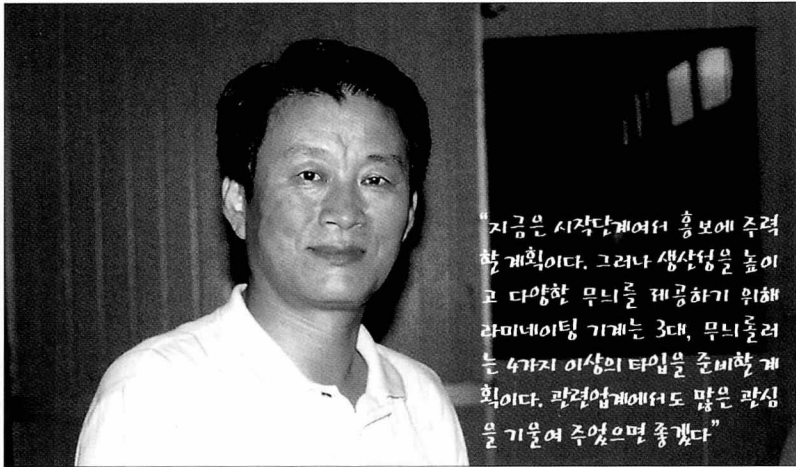 “지금은 시작단계여서 홍보에 주력
할 계획이다. 그러나 생산성을 높이
고 다양한 무늬를 제공하기 위해
라미네이팅 기계는 3대, 무늬롤러
는 4가지 이상의 타입을 준비할 계
획이다. 관련업계에서도 많은 관심
을 기울여 주었으면 좋겠다”